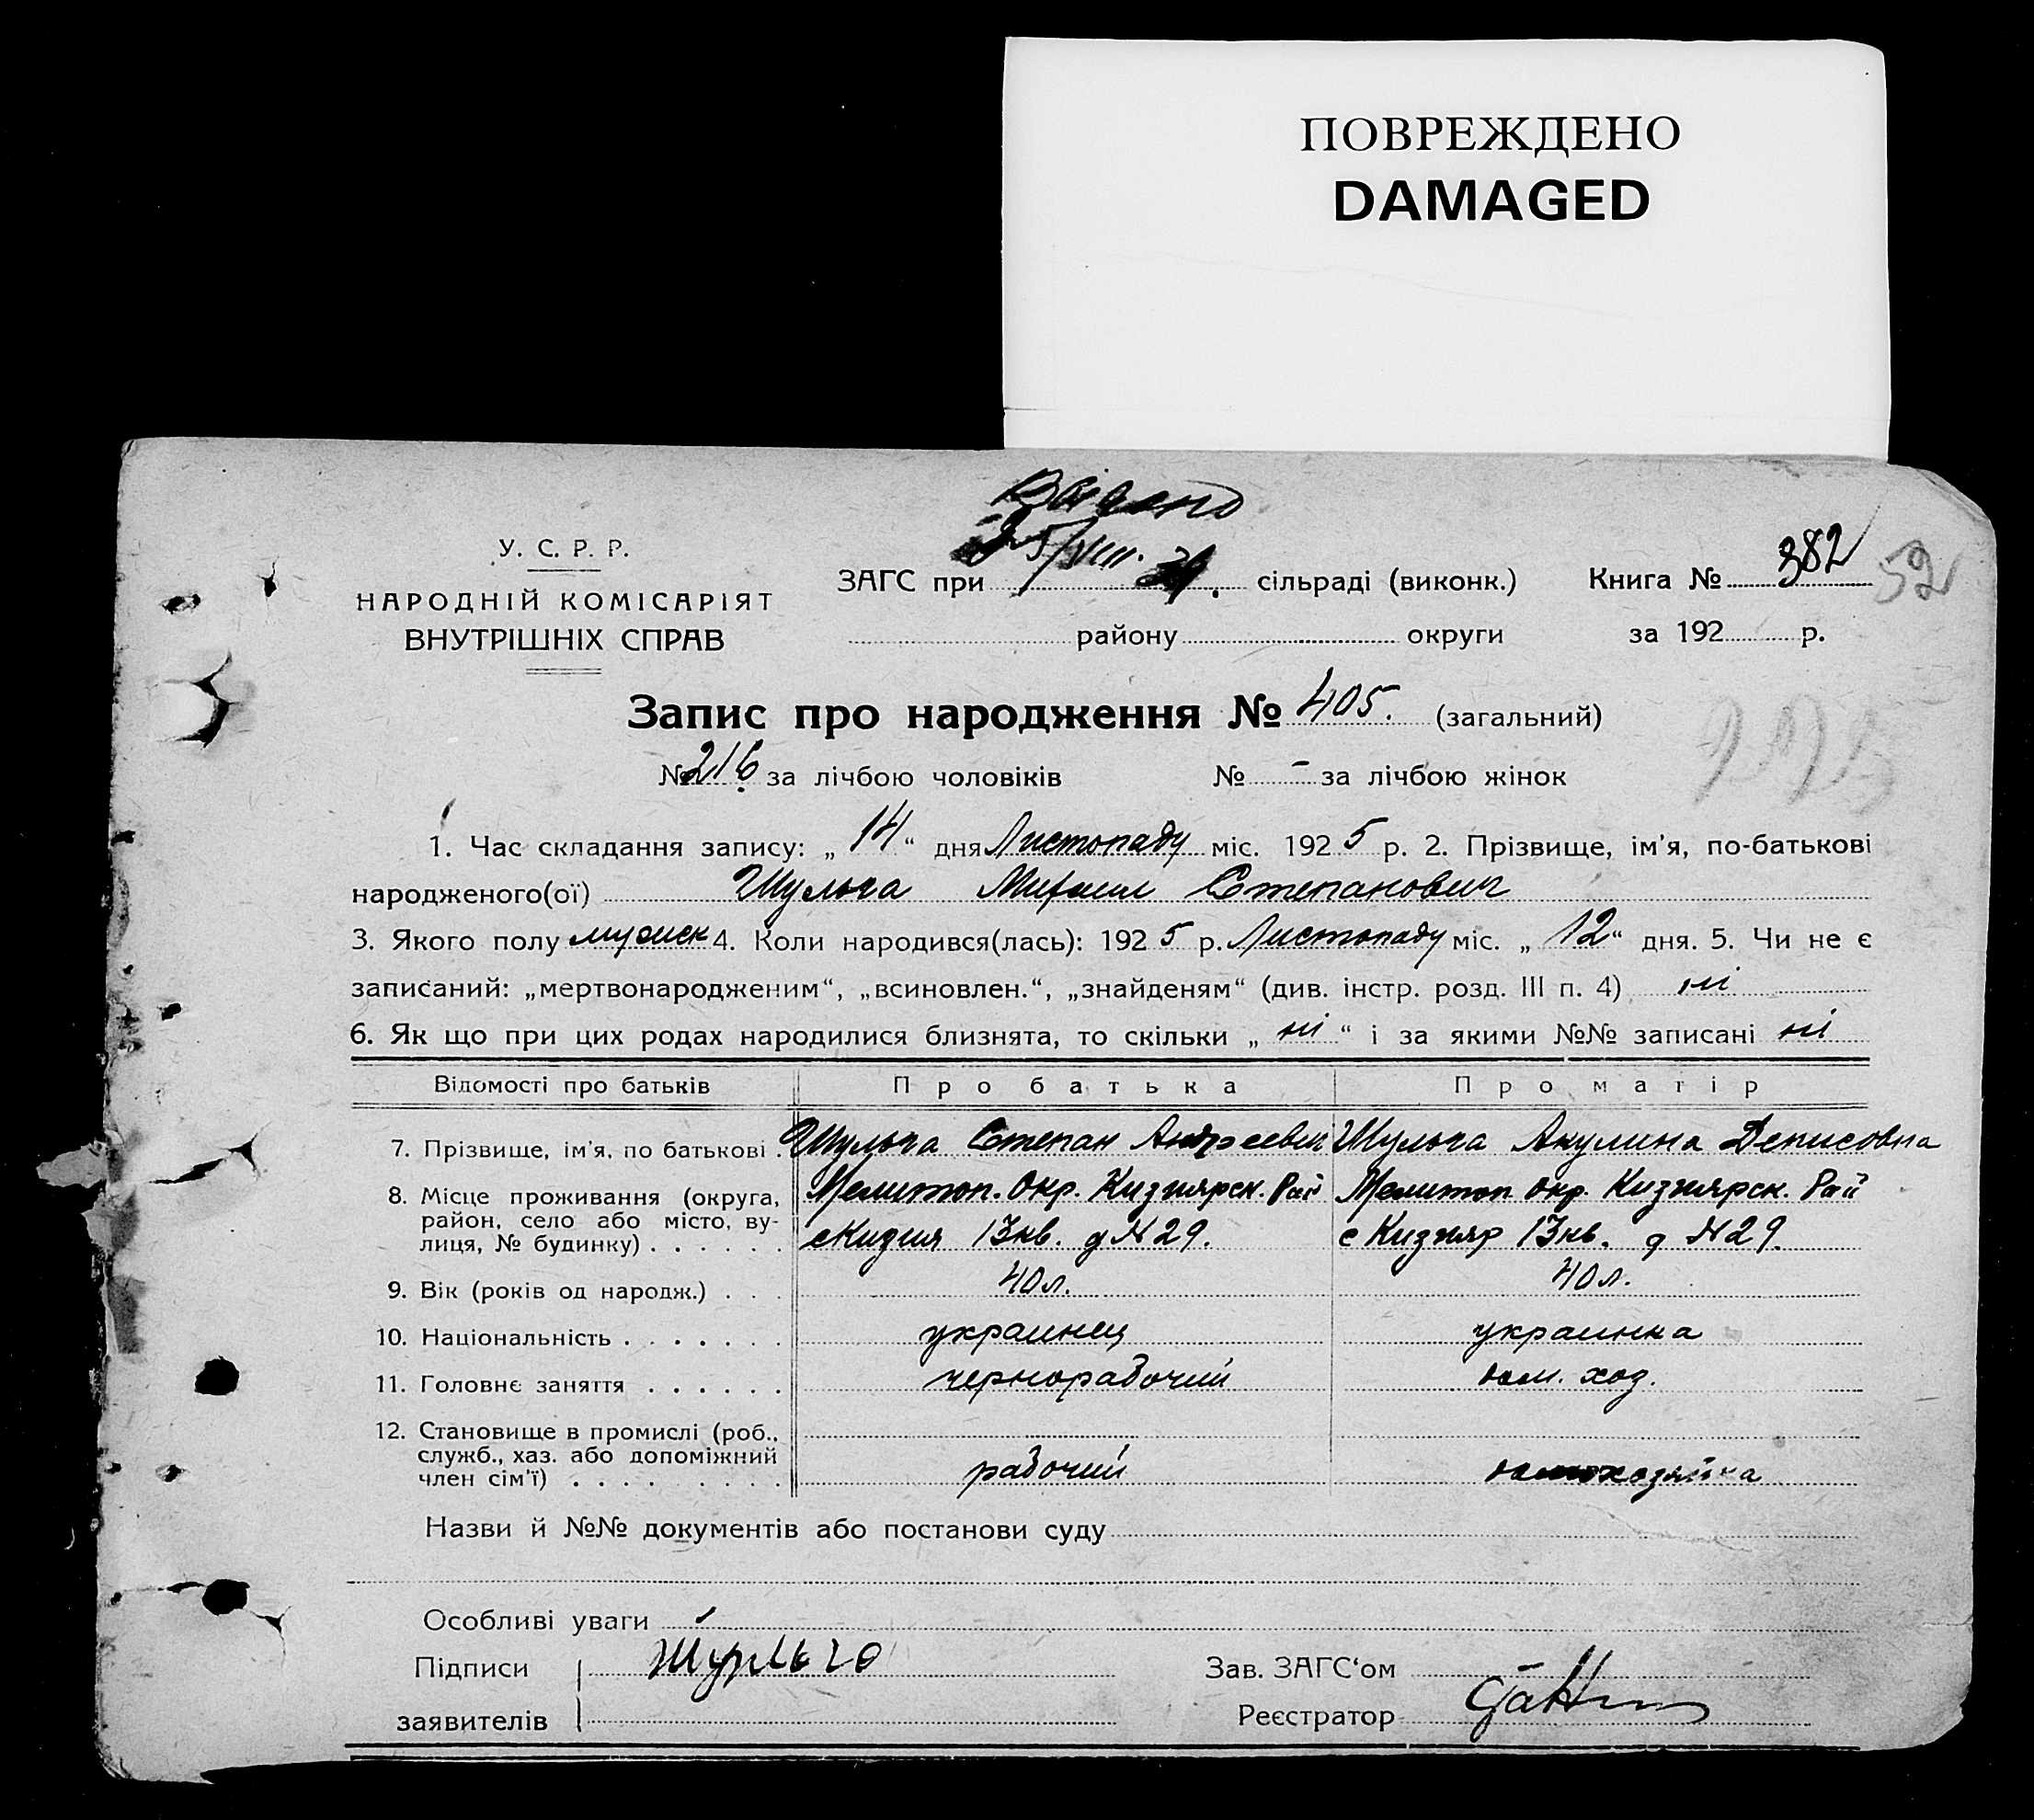 ПОВРЕЖДЕНО
DAMAGED
У. С. Р. Р.
НАРОДНІЙ КОМІСАРІЯТ
ВНУТРІШНІХ СПРАВ
ЗАГС при 25/VIII. сільраді (виконк.) Книга № 382 52
району округи за 192 р.
Запис про народження № 405. (загальний)
№ 216 за лічбою чоловіків № - за лічбою жінок
1925
1. Час складання запису: „14“ дня Листопаду міс. 1925 р. 2. Прізвище, ім'я, по-батькові
народженого(ої) Шульга Михаил Степанович
3. Якого полу мужск 4. Коли народився(лась): 1925 р. Листопаду міс. „12“ дня. 5. Чи не є
записаний: „мертвонародженим“, „всиновлен.“, „знайденям“ (див. інстр. розд. III п. 4) ні
6. Як що при цих родах народилися близнята, то скільки „ні“ і за якими №№ записані ні
Відомості про батьків Про батька Про матір
7. Прізвище, ім'я, по батькові . Шульга Степан Андреевич Шульга Акулина Денисовна
8. Місце проживання (округа, Мелитоп. Окр. Кизиярск. Рай Мелитоп окр. Кизиярск. Рай
район, село або місто, ву-
лиця, № будинку) . . . . . . с Кизия 13 кв. д N 29. с Кизияр 13 кв. д N 29.
9. Вік (років од народж.) . . . 40 л. 40 л.
10. Національність . . . . . . . украинец украинка
11. Головнє заняття . . . . . . чернорабочий дом. хоз.
12. Становище в промислі (роб.,
служб., хаз. або допоміжний
член сім'ї) . . . . . . . . . рабочий домохозяйка
Назви й №№ документів або постанови суду
Особливі уваги
Підписи Шульга Зав. ЗАГС‘ом
заявителів Реєстратор